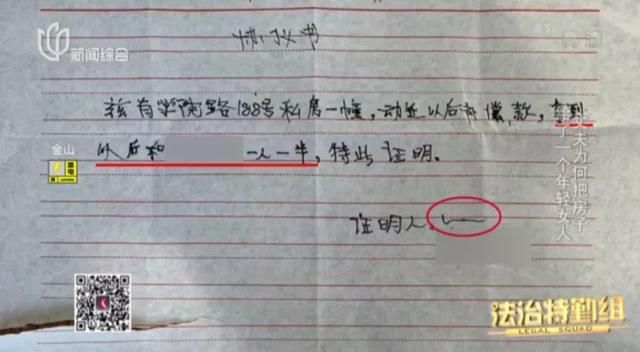 新闻综合
高清
协议书
兹有学院路188号私房一幢，动迁以后补偿款，拿到
以后和 一人一半，特此证明。
证明人
金山
夫为何把房子
了一个年轻女人
法治特勤组
LEGAL SQUAD